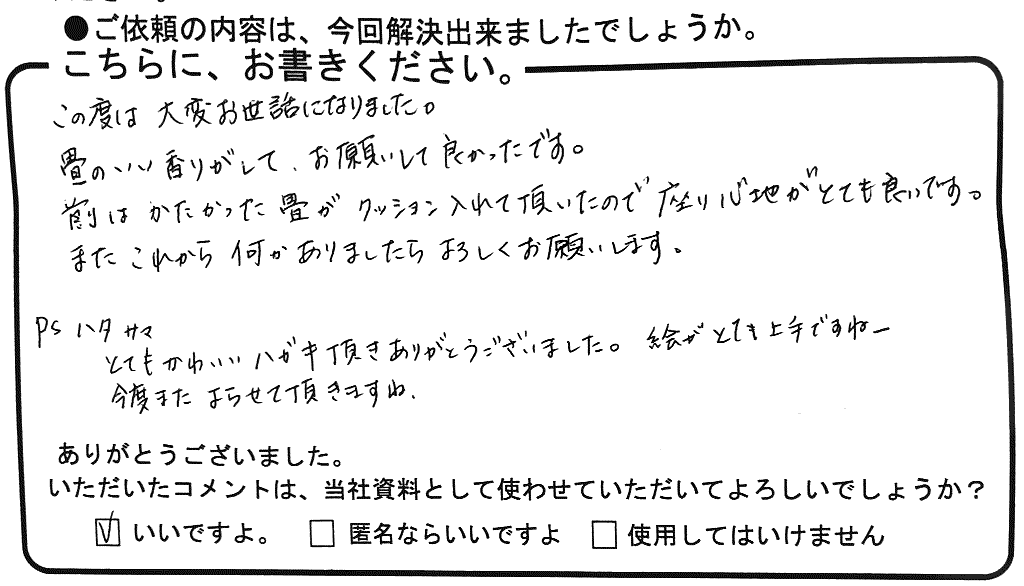 ●ご依頼の内容は、今回解決出来ましたでしょうか。
こちらに、お書きください。
この度は 大変お世話になりました。
畳のいい香りがして、お願いして良かったです。
前は かたかった畳が クッション入れて頂いたので座り心地がとても良いです。
また これから 何か ありましたら よろしくお願いします。
PS ハタ サマ
とてもかわいいハガキ頂きありがとうございました。絵がとても上手ですねー
今度また よらせて頂きますね.
ありがとうございました。
いただいたコメントは、当社資料として使わせていただいてよろしいでしょうか？
☑ いいですよ。 □ 匿名ならいいですよ □ 使用してはいけません